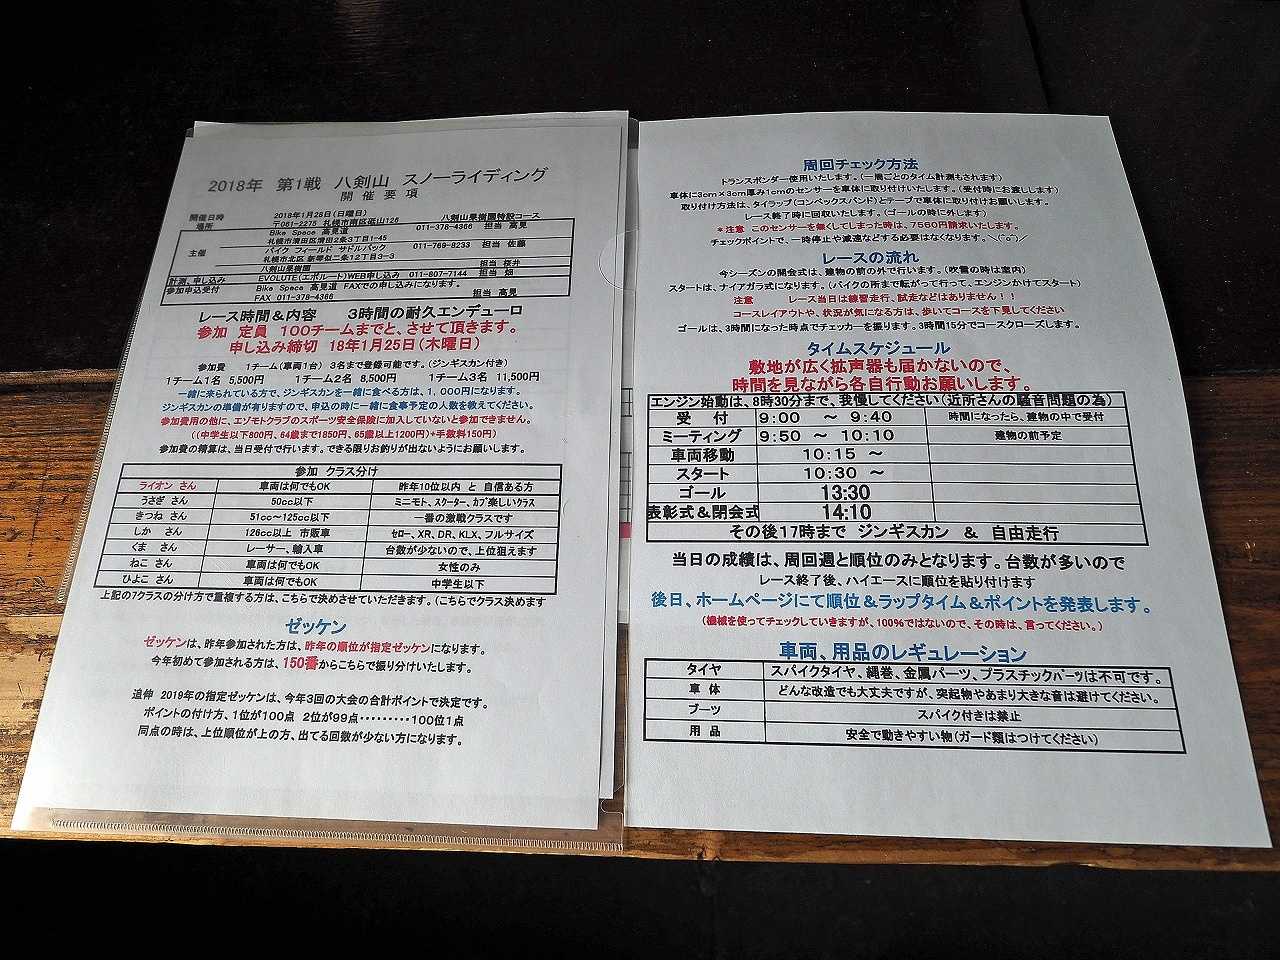 2018年 第1戦 八剣山 スノーライディング
開催要項
開催日時 2018年1月28日(日曜日) 八剣山果樹園特設コース
場所 〒061-2275 札幌市南区砥山126 011-378-4366 担当 高見
主催 Bike Space 高見道
札幌市清田区清田2条3丁目1-45
バイク フィールド サドルバック 011-769-8233 担当 佐藤
札幌市北区 新琴似二条12丁目3-3
八剣山果樹園 担当 桜井
計測、申し込み EVOLUTE(エボルート)WEB申し込み 011-807-7144 担当 畑
参加申込受付 Bike Space 高見道 FAXでの申し込みになります。
FAX 011-378-4366 担当 高見
レース時間&内容 3時間の耐久エンデューロ
参加 定員 100チームまでと、させて頂きます。
申し込み締切 18年1月25日(木曜日)
参加費 1チーム(車両1台) 3名まで登録可能です。(ジンギスカン付き)
1チーム1名 5,500円 1チーム2名 8,500円 1チーム3名 11,500円
一緒に来られている方で、ジンギスカンを一緒に食べる方は、1,000円になります。
ジンギスカンの準備が有りますので、申込の時に一緒に食事予定の人数を教えてください。
参加費用の他に、エゾモトクラブのスポーツ安全保険に加入していないと参加できません。
((中学生以下800円、64歳まで1850円、65歳以上1200円)+手数料150円)
参加費の精算は、当日受付で行います。できる限りお釣りが出ないようにお願いします。
参加 クラス分け
ライオン さん 車両は何でもOK 昨年10位以内 と 自信ある方
うさぎ さん 50cc以下 ミニモト、スクーター、カブ楽しいクラス
きつね さん 51cc~125cc以下 一番の激戦クラスです
しか さん 126cc以上 市販車 セロー、XR、DR、KLX、フルサイズ
くま さん レーサー、輸入車 台数が少ないので、上位狙えます
ねこ さん 車両は何でもOK 女性のみ
ひよこ さん 車両は何でもOK 中学生以下
上記の7クラスの分け方で重複する方は、こちらで決めさせていただきます。(こちらでクラス決めます
ゼッケン
ゼッケンは、昨年参加された方は、昨年の順位が指定ゼッケンになります。
今年初めて参加される方は、150番からこちらで振り分けいたします。
追伸 2019年の指定ゼッケンは、今年3回の大会の合計ポイントで決定です。
ポイントの付け方、1位が100点 2位が99点・・・・・・・・・100位1点
同点の時は、上位順位が上の方、出てる回数が少ない方になります。
周回チェック方法
トランスポンダー使用いたします。(一周ごとのタイム計測もされます)
車体に3cm×3cm厚み1cmのセンサーを車体に取り付けいたします。(受付時にお渡しします)
取り付け方法は、タイラップ(コンベックスバンド)とテープで車体に取り付けお願いします。
レース終了時に回収いたします。(ゴールの時に外します)
*注意 このセンサーを無くしてしまった時は、7560円請求いたします。
チェックポイントで、一時停止や減速などする必要はなくなります。＼(^o^)／
レースの流れ
今シーズンの開会式は、建物の前の外で行います。(吹雪の時は室内)
スタートは、ナイアガラ式になります。(バイクの所まで転がって行って、エンジンかけてスタート)
注意 レース当日は練習走行、試走などはありません!!
コースレイアウトや、状況が気になる方は、歩いてコースを下見してください
ゴールは、3時間になった時点でチェッカーを振ります。3時間15分でコースクローズします。
タイムスケジュール
敷地が広く拡声器も届かないので、
時間を見ながら各自行動お願いします。
エンジン始動は、8時30分まで、我慢してください(近所さんの騒音問題の為)
受 付 9:00 ~ 9:40 時間になったら、建物の中で受付
ミーティング 9:50 ~ 10:10 建物の前予定
車両移動 10:15 ~
スタート 10:30 ~
ゴール 13:30
表彰式&閉会式 14:10
その後17時まで ジンギスカン & 自由走行
当日の成績は、周回週と順位のみとなります。台数が多いので
レース終了後、ハイエースに順位を貼り付けます
後日、ホームページにて順位&ラップタイム&ポイントを発表します。
(機械を使ってチェックしていきますが、100%ではないので、その時は、言ってください。)
車両、用品のレギュレーション
タイヤ スパイクタイヤ、縄巻、金属パーツ、プラスチックパーツは不可です。
車 体 どんな改造でも大丈夫ですが、突起物やあまり大きな音は避けてください。
ブーツ スパイク付きは禁止
用 品 安全で動きやすい物(ガード類はつけてください)